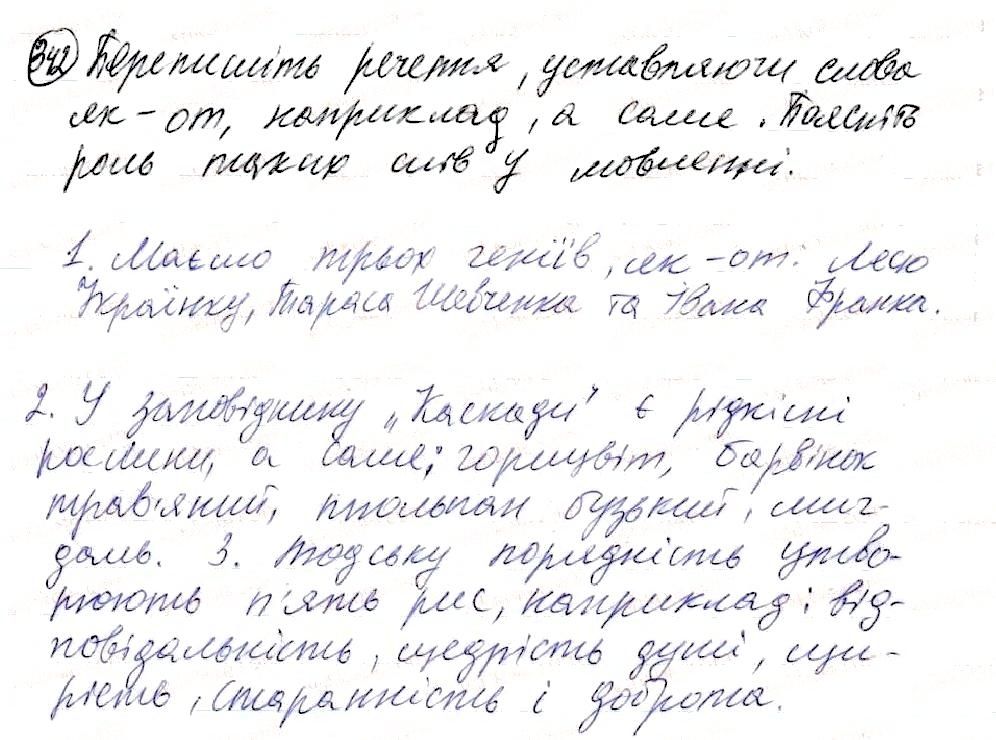 342 Перепишіть речення, уставляючи слова
як-от, наприклад, а саме. Поясніть
роль таких слів у мовленні.
1. Маємо трьох геніїв, як-от: Лесю
Українку, Тараса Шевченка та Івана Франка.
2. У заповіднику „Каскади" є рідкісні
рослини, а саме: горицвіт, барвінок
трав'яний, тюльпан бузький, миг-
даль. 3. Людську порядність утво-
рюють п'ять рис, наприклад: від-
повідальність, щедрість душі, щи-
рість, старанність і доброта.